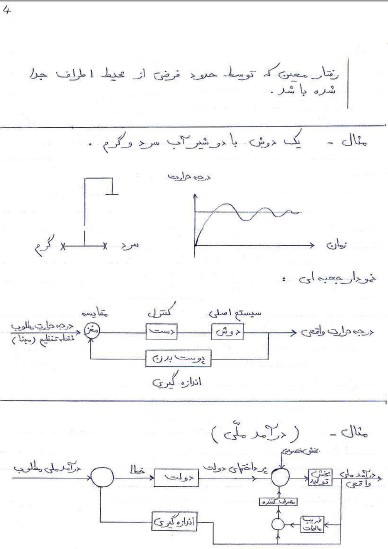 4
رفتار معین که توسط حدود فرضی از محیط اطراف جدا
شده باشد.
مثال - یک دوش با دو شیر آب سرد و گرم .
درجه حرارت
زمان
گرم
سرد
نمودار جعبه ای :
مقایسه
کنترل
سیستم اصلی
درجه حرارت مطلوب
نقطه تنظیم (مبنا)
مغز
دست
دوش
درجه حرارت واقعی
پوست بدن
اندازه گیری
مثال - (درآمد ملّی)
بخش خصوصی
درآمد ملی مطلوب
خطا
دولت
پرداختهای دولت
بخش تولید
درآمد ملی
واقعی
مصرف کننده
ضریب
مالیات
اندازه گیری